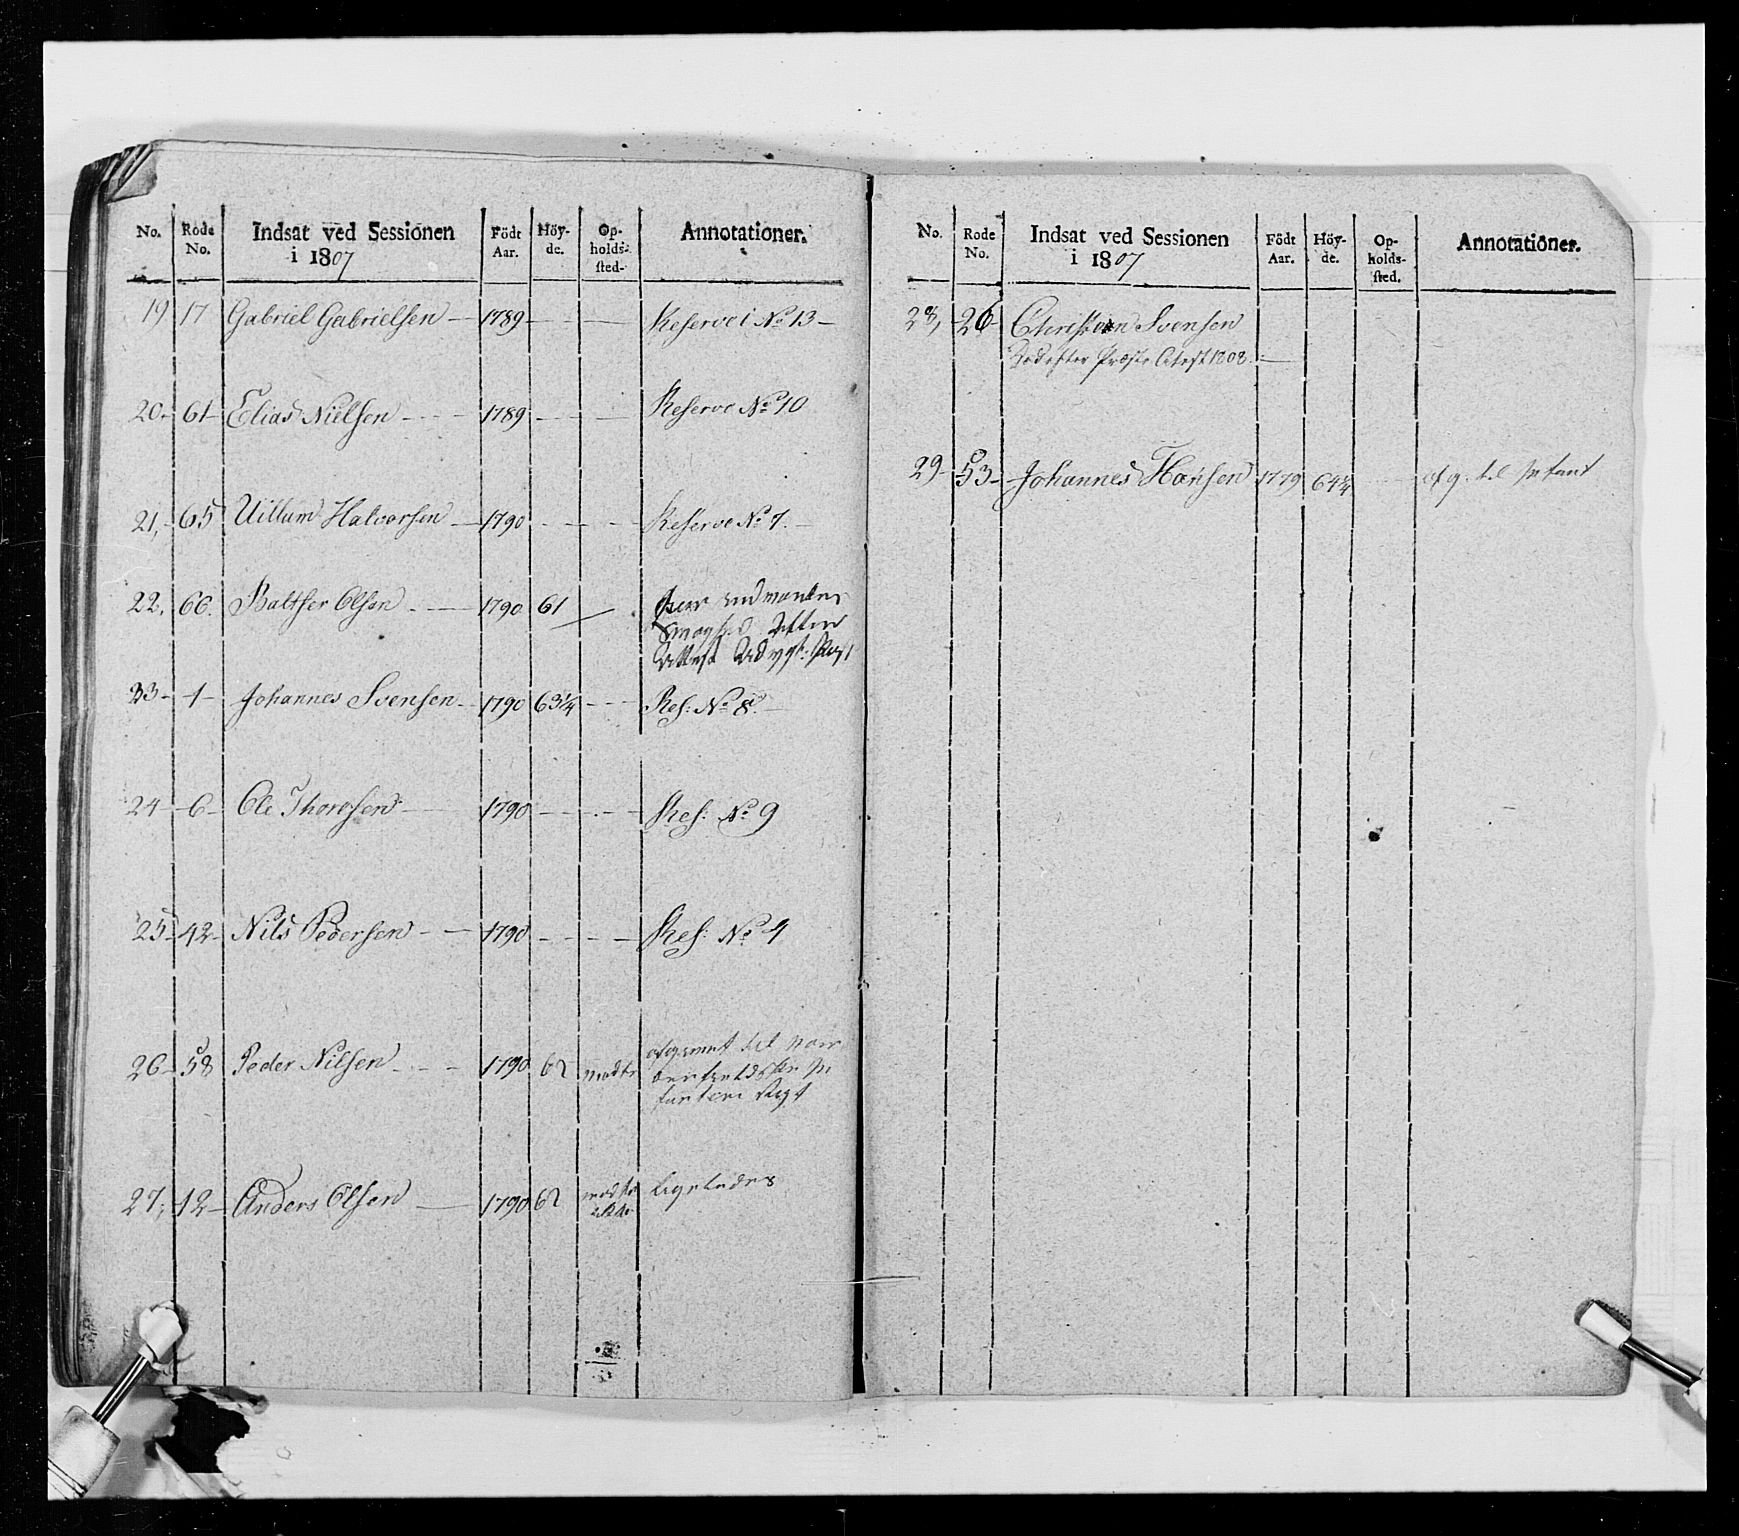 No. Rode No. Indsat ved Sessionen i 1807 Födt Aar. Höy-de. Op-holds-sted. Annotationer.
19 17 Gabriel Gabrielsen 1789 Reserve i No 13
20 61 Elias Nielsen 1789 Reserve No 10
21, 65 Willum Halvorsen 1790 Reserve No 7.
22, 66. Baltser Olsen 1790 61
23 1 Johannes Svensen 1790 63 1/4 Res: No 8.
24 6 Ole Thorsen 1790 Res: No 9
25 42 Nils Pedersen 1790 Res: No 4
26 58 Peder Nilsen 1790 62 afgivet til Nor
fanteri Regt
27, 12 Anders Olsen 1790 62 ligeledes
No. Rode No. Indsat ved Sessionen i 1807 Födt Aar. Höy-de. Op-holds-sted. Annotationer.
28, 26 Christen Svensen
Død efter Præste Attest 1808.
29 53 Johannes Hansen 1779 64 1/4 afg. til Infant